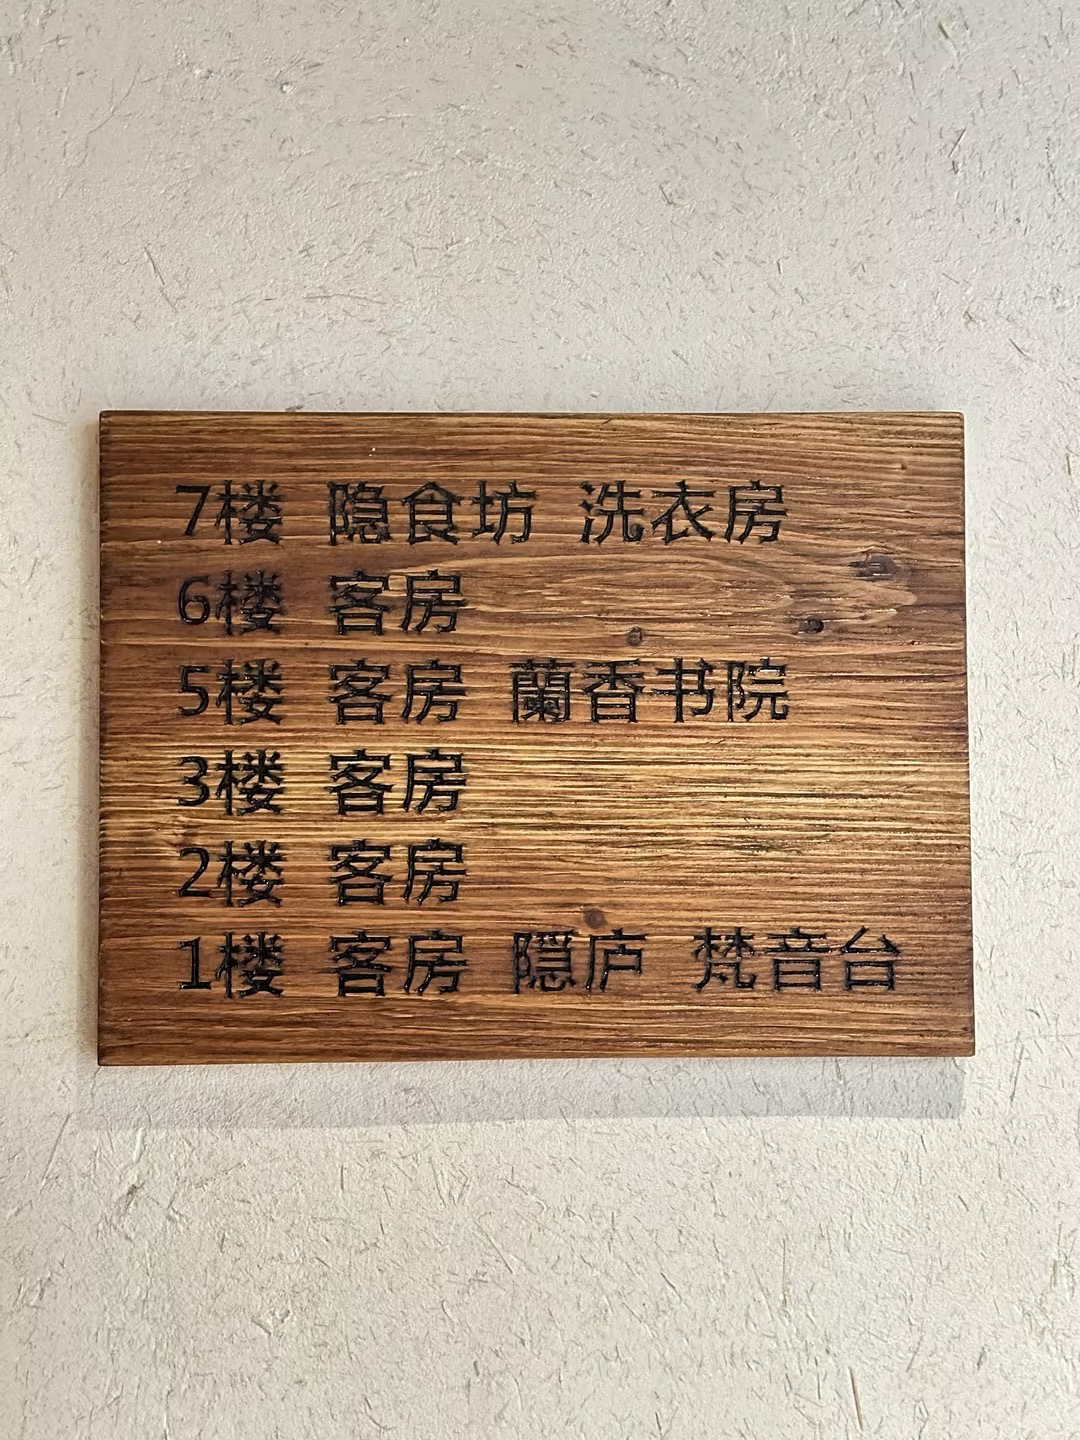 7楼 隐食坊 洗衣房
6楼 客房
5楼 客房 蘭香书院
3楼 客房
2楼 客房
1楼 客房 隱庐 梵音台